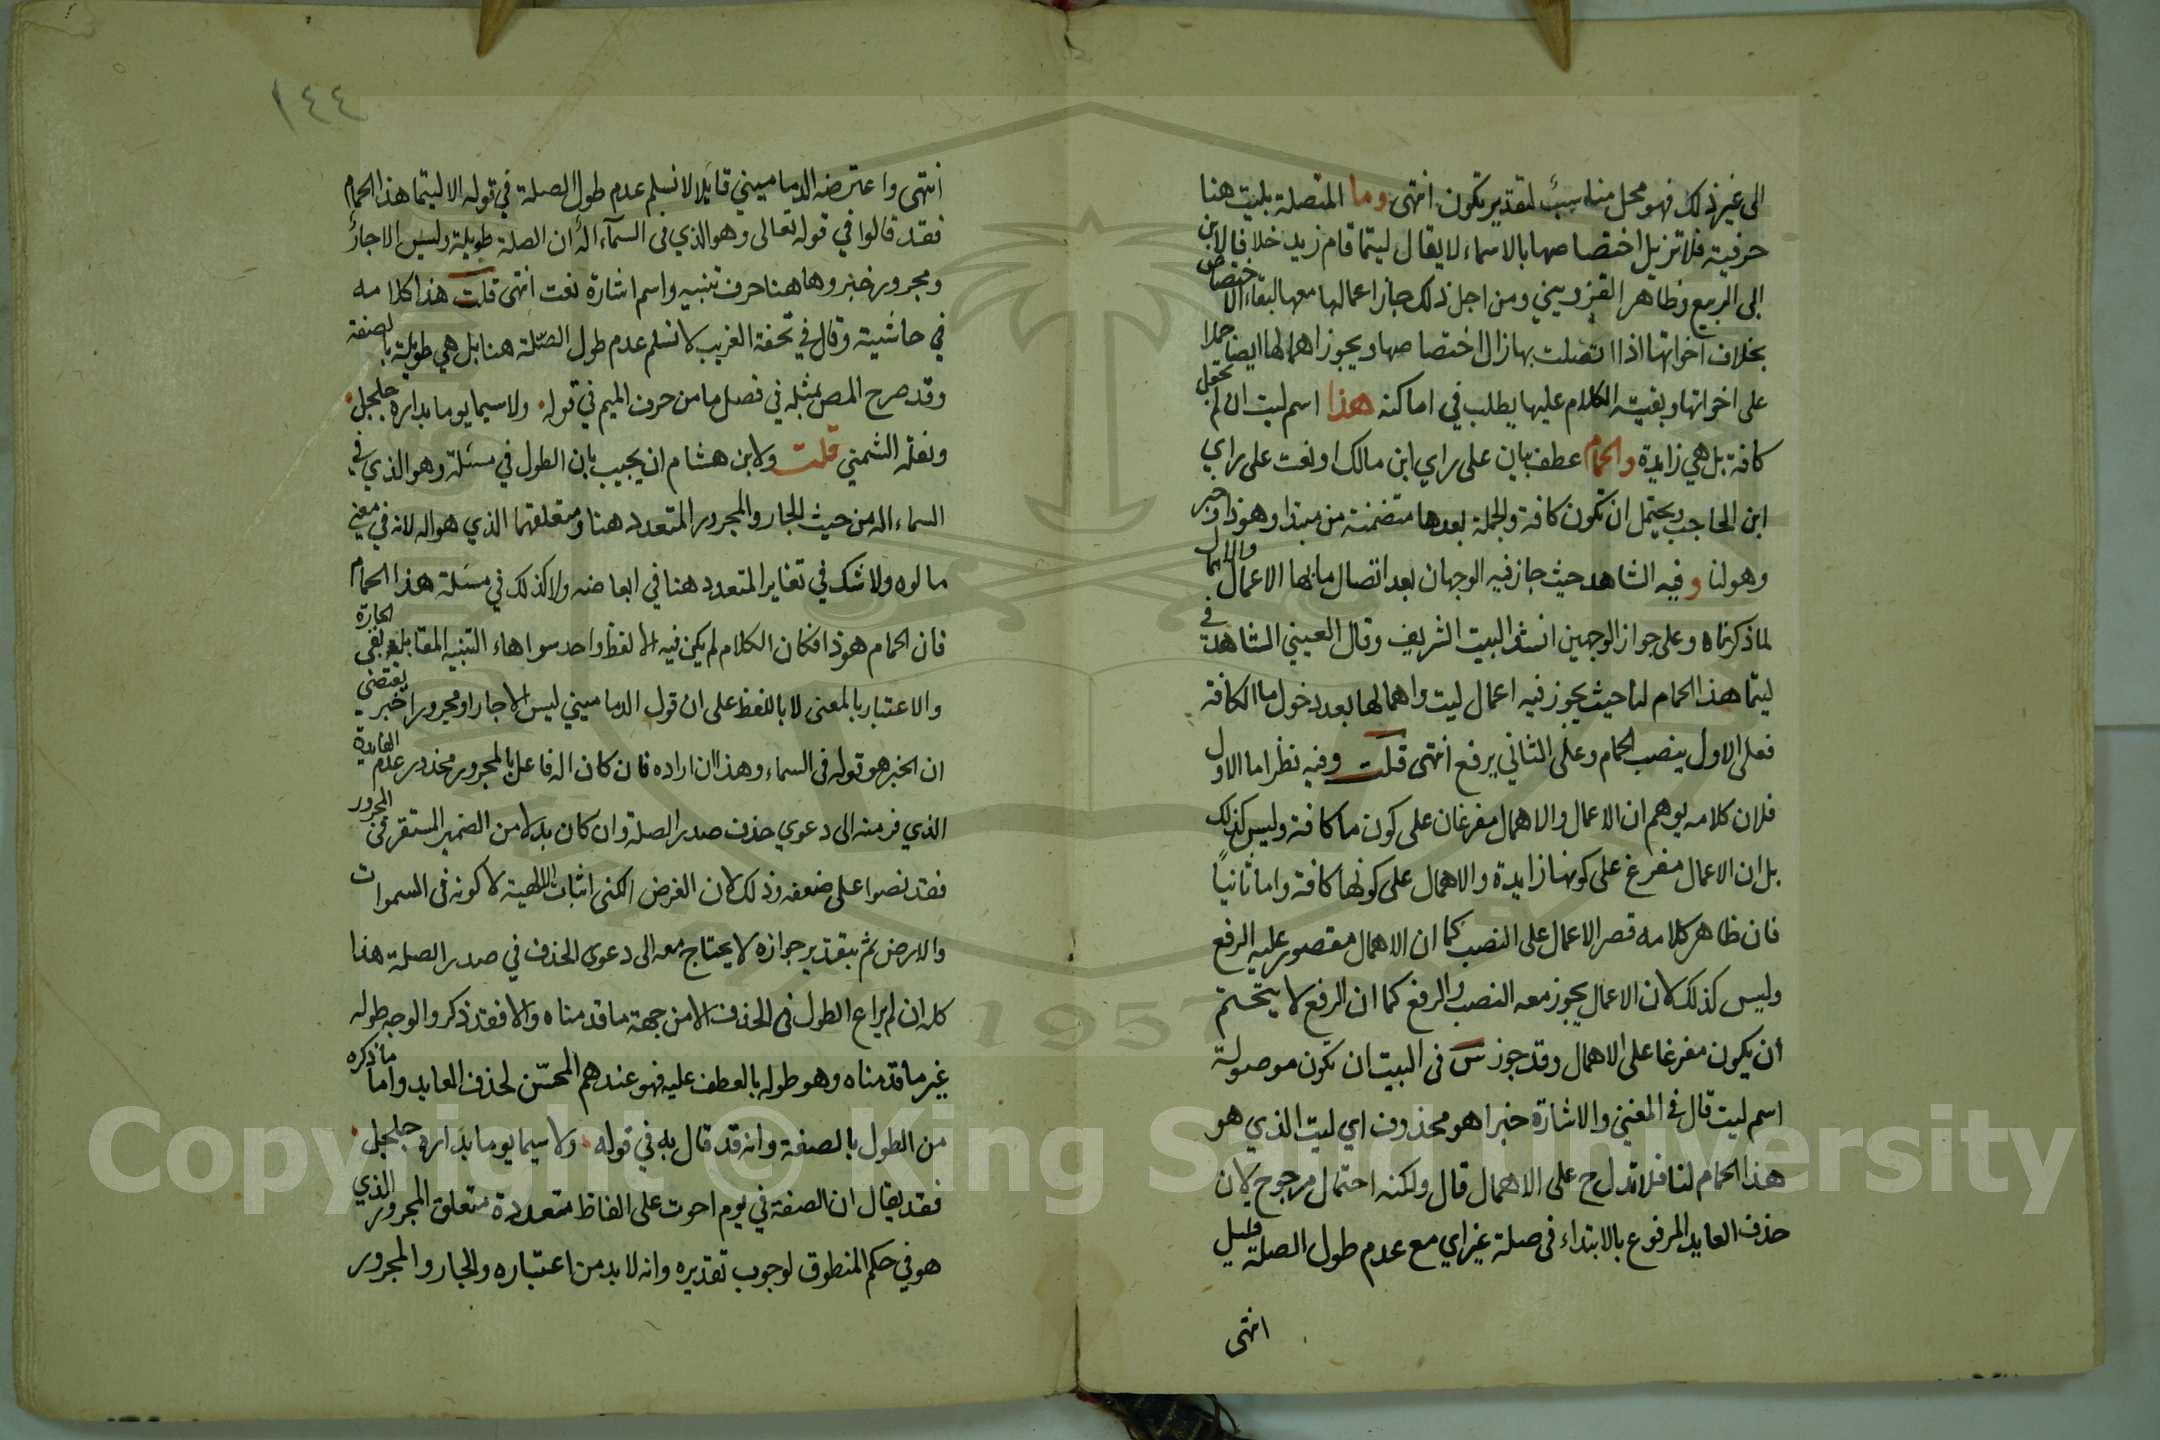 الى غير ذلك فهو محل مناسب لتقدير تكون انتهى وما المتصلة بليت هنا
حرفية فلا تزيل اختصاصها بالاسماء لا يقال ليتما قام زيد خلافا لابن
ابى الربيع وظاهر القزويني ومن اجل ذلك جاز اعمالها معها لبقاء الاختصاص
بخلاف اخواتها اذا اتصلت بها زال اختصاصها ويجوز اهمالها ايضا حملا
على اخواتها وبقية الكلام عليها يطلب في اماكنه هذا اسم ليت ان لم تجعل
كافة بل هي زايدة والحمام عطف بيان على راي ابن مالك او نعت على راي
ابن الحاجب ويحتمل ان تكون كافة والجملة بعدها متضمنة من مبتدا وهو ذا وخبر
وهو لنا وفيه الشاهد حيث جاز فيه الوجهان بعد اتصال ما بها الاعمال والاهمال
لما ذكرناه وعلى جواز الوجهين انشد البيت الشريف وقال العيني الشاهد في
ليتما هذا الحمام لنا حيث يجوز فيه اعمال ليت واهمالها بعد دخول ما الكافة
فعلى الاول ينصب الحمام وعلى الثاني يرفع انتهى قلت وفيه نظر اما الاول
فلان كلامه يوهم ان الاعمال والاهمال مفرغان على كون ما كافة وليس كذلك
بل ان الاعمال مفرغ على كونها زايدة والاهمال على كونها كافة واما ثانيا
فان ظاهر كلامه قصر الاعمال على النصب كما ان الاهمال مقصور عليه الرفع
وليس كذلك لان الاعمال يجوز معه النصب والرفع كما ان الرفع لا يتحتم
ان يكون مفرغا على الاهمال وقد جوز س فى البيت ان تكون موصولة
اسم ليت قال في المغني والاشارة خبرا هو محذوف اي ليت الذي هو
هذا الحمام لنا فلا تدل ح على الاهمال قال ولكنه احتمال مرجوح لان
حذف العايد المرفوع بالابتداء فى صلة غير اي مع عدم طول الصلة قليل
انتهى
١٤٤
انتهى واعترضه الدماميني قايلا لا نسلم عدم طول الصلة في قوله الا ليتما هذا الحمام
فقد قالوا في قوله تعالى وهو الذي فى السمآء اله ان الصلة طويلة وليس الا جار
ومجرور خبر وها هنا حرف تنبيه واسم اشارة نعت انتهى قلت هذا كلامه
في حاشيته وقال في تحفة الغريب لا نسلم عدم طول الصلة هنا بل هي طويلة بالصفة
وقد صرح المص بمثله في فصل ما من حرف الميم في قوله ولا سيما يوما بدارة جلجل
ونقله الشمني قلت ولابن هشام ان يجيب بان الطول في مسئلة وهو الذي في
السماء اله من حيث الجار والمجرور المتعدد هنا ومتعلقهما الذي هو اله لانه في معنى
مالوه ولا شك في تغاير المتعدد هنا في ابعاضه ولا كذلك في مسئلة هذا الحمام
فان الحمام هو ذا فكان الكلام لم يكن فيه الا لفظ واحد سوا هاء التنبيه المقابلة بفى الجارة
والاعتبار بالمعنى لا باللفظ على ان قول الدماميني ليس الا جارا ومجرورا خبر يقتضي
ان الخبر هو قوله فى السماء وهذا ان اراده فان كان اله فاعل بالمجرور محذور عدم العايدة
الذي فر منه الى دعوي حذف صدر الصلة وان كان بدلا من الضمير المستقر في المجرور
فقد نصوا على ضعفه وذلك لان الغرض اثبات اللهية لا كونه فى السموات
والارض ثم بتقدير جوازه لا يحتاج معه الى دعوى الحذف في صدر الصلة هذا
كله ان لم يراع الطول فى الحذف الا من جهة ما قدمناه والا فقد ذكر والوجه طوله
غير ما قدمناه وهو طوله بالعطف عليه فهو عندهم المحسن لحذف العايد واما ما ذكره
من الطول بالصفة وانه قد قال به في قوله ولا سيما يوما بدارة جلجل
فقد يقال ان الصفة في يوم احوت على الفاظ متعددة متعلق المجرور الذي
هو في حكم المنطوق لوجوب تقديره وانه لا بد من اعتباره والجار والمجرور
Copyright © King Saud University
1957